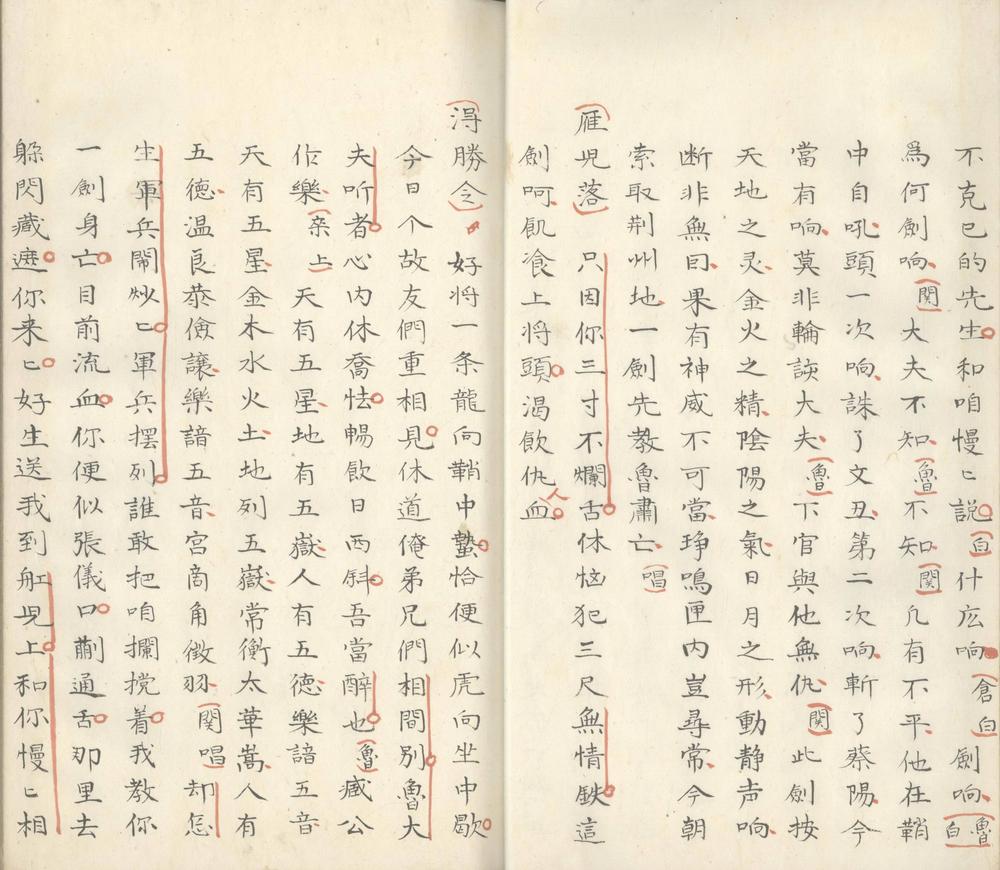 不克己的先生和咱慢〻說白什庅响倉白劍响魯白
爲何劍响関大夫不知魯不知関凢有不平他在鞘
中自吼頭一次响誅了文丑第二次响斬了蔡陽今
當有响莫非輪該大夫魯下官與他無仇関此劍按
天地之灵金火之精陰陽之氣日月之形動静声响
断非無因果有神威不可當琤鳴匣内豈尋常今朝
索取荆州地一劍先教魯肅亡唱
雁児落只因你三寸不爛舌休恼犯三尺無情鉄這
劍呵飢飡上将頭渴飲仇人血
淂勝令好将一条龍向鞘中蟄恰便似虎向坐中歇
今日个故友們重相見休道俺弟兄們相間别魯大
夫听者心内休喬怯暢飲日西斜吾當醉也魯臧公
作樂亲上天有五星地有五嶽人有五德樂諳五音
天有五星金木水火土地列五嶽常衡太華嵩人有
五德温良恭儉讓樂諳五音宫商角徵羽関唱却怎
生軍兵鬧炒〻軍兵擺列誰敢把咱攔搅着我教你
一劍身亡目前流血你便似張儀口蒯通舌那里去
躲閃藏遮你来〻好生送我到舡児上和你慢〻相